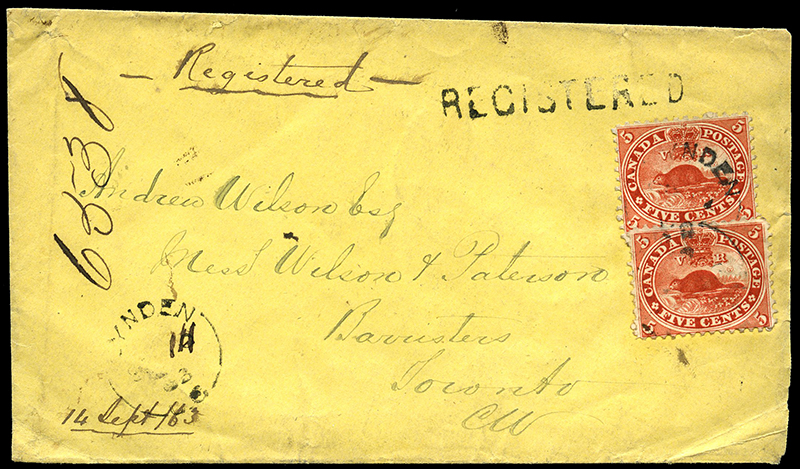 — Registered —
REGISTERED
6538
Andrew Wilson Esq
Mess Wilson & Paterson
Barristers
Toronto
CW
5 5
CANADA POSTAGE
V R
FIVE CENTS
5 5
NDEN
5 5
CANADA POSTAGE
V R
FIVE CENTS
5 5
YNDEN
14 Sept /63